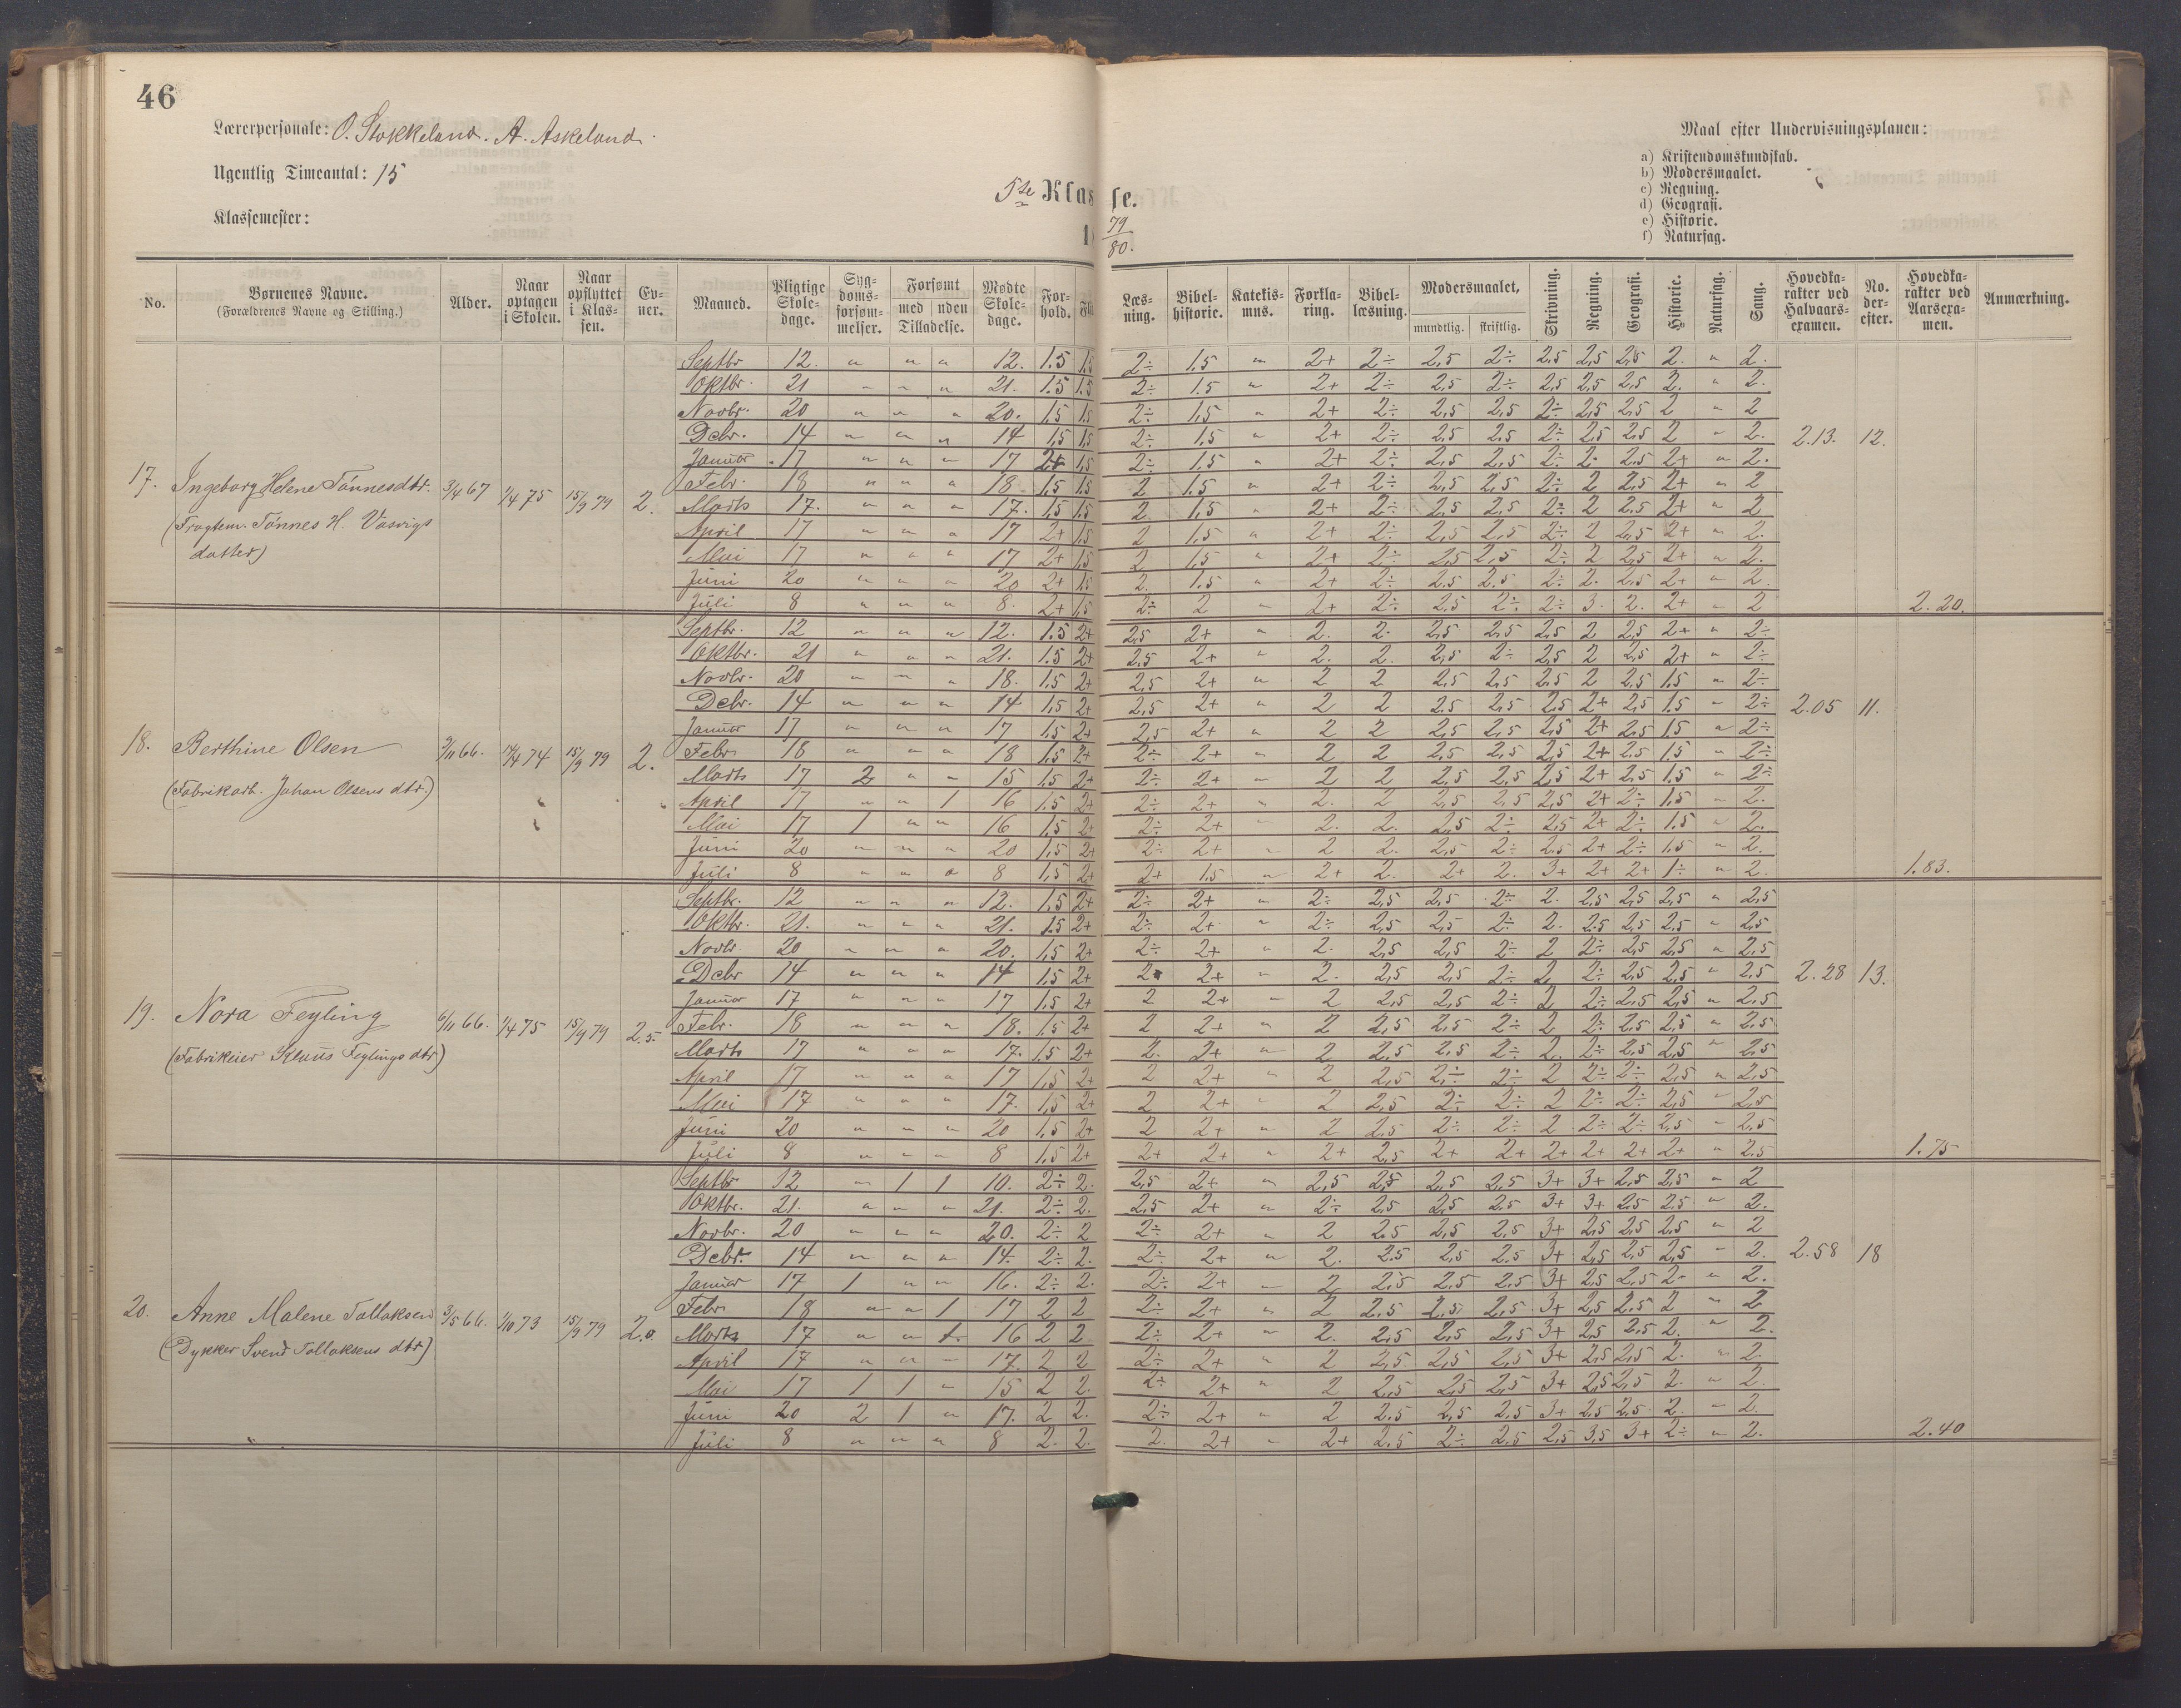 46
Lærerpersonale: O. Stokkeland. A. Askeland.
Ugentlig Timeantal: 15
Klassemester:
5te Klasse.
79/80.
Maal efter Undervisningsplanen:
a) Kristendomskundskab.
b) Modersmaalet.
c) Regning.
d) Geografi.
e) Historie.
f) Naturfag.
No. Børnenes Navne. (Forældrenes Navne og Stilling.) Alder. Naar optagen i Skolen. Naar opflyttet i Klassen. Evner. Maaned. Pligtige Skoledage. Sygdomsforsømmelser. Forsømt med uden Tilladelse. Mødte Skoledage. Forhold. Læsning. Bibelhistorie. Katekismus. Forklaring. Bibellæsning. Modersmaalet, mundtlig. skriftlig. Skrivning. Regning. Geografi. Historie. Naturfag. Sang. Hovedkarakter ved Halvaarsexamen. No. derefter. Hovedkarakter ved Aarsexamen. Anmærkning.
17. Ingeborg Helene Tönnesdtr. 3/4 67 1/4 75 15/9 79 2.
(Fragtem. Tönnes H. Vasvigs
datter)
Septbr 12. " " " 12. 1.5 1.5 2÷ 1.5 " 2+ 2÷ 2,5 2÷ 2,5 2,5 2,5 2. " 2.
Oktbr. 21 " " " 21. 1.5 1.5 2÷ 1.5 " 2+ 2÷ 2,5 2÷ 2,5 2,5 2,5 2. " 2.
Novbr. 20 " " " 20. 1,5 1,5 2÷ 1,5 " 2+ 2÷ 2,5 2,5 2÷ 2,5 2,5 2 " 2
Debr. 14 " " " 14 1,5 1,5 2÷ 1,5 " 2+ 2÷ 2,5 2,5 2÷ 2,5 2,5 2 " 2. 2.13. 12.
Januar 17 " " " 17 2+ 1,5 2÷ 1.5 " 2+ 2÷ 2,5 2,5 2÷ 2. 2,5 2+ " 2.
Febr. 18 " " " 18 1,5 1,5 2 1.5 " 2+ 2÷ 2,5 2,5 2÷ 2 2,5 2+ " 2
Marts 17. " " " 17. 1,5 1,5 2 1,5 " 2+ 2÷ 2,5 2,5 2÷ 2 2,5 2+ " 2
April 17 " " " 17 2+ 1,5 2 1,5 " 2+ 2÷ 2,5 2,5 2÷ 2 2,5 2+ " 2.
Mai 17 " " " 17 2+ 1,5 2 1,5 " 2+ 2÷ 2,5 2,5 2÷ 2 2,5 2+ " 2.
Juni 20 " " " 20 2+ 1,5 2. 1.5 " 2+ 2÷ 2.5 2.5 2÷ 2. 2,5 2+ " 2.
Juli 8 " " " 8. 2+ 1,5 2÷ 2 " 2+ 2÷ 2,5 2÷ 2÷ 3. 2. 2+ " 2 2.20.
18. Berthine Olsen 9/11 66. 14/4 74 15/9 79 2.
(Fabrikarb. Johan Olsens dtr.)
Septbr. 12 " " " 12. 1.5 2+ 2,5 2+ " 2. 2. 2,5 2,5 2,5 2 2,5 2+ " 2÷
Oktbr. 21 " " " 21. 1.5 2+ 2.5 2+ " 2. 2. 2,5 2÷ 2,5 2 2,5 2+ " 2÷
Novbr. 20 " " " 18. 1,5 2+ 2,5 2+ " 2 2 2,5 2,5 2,5 2 2,5 1,5 " 2÷
Debr. 14 " " " 14 1,5 2+ 2,5 2+ " 2 2 2,5 2,5 2,5 2+ 2,5 1.5 " 2÷ 2.05 11.
Januar 17 " " " 17 1,5 2+ 2,5 2+ " 2 2 2,5 2,5 2,5 2+ 2,5 1,5 " 2÷
Febr. 18 " " " 18 1,5 2+ 2÷ 2+ " 2 2 2,5 2,5 2,5 2+ 2,5 1,5 " 2÷
Marts 17 2 " " 15 1.5 2+ 2÷ 2+ " 2 2 2,5 2,5 2,5 2+ 2,5 1,5 " 2÷
April 17 " " 1 16 1.5 2+ 2÷ 2+ " 2. 2 2,5 2,5 2,5 2+ 2÷ 1,5 " 2.
Mai 17 1 " " 16 1,5 2+ 2÷ 2+ " 2. 2. 2,5 2÷ 2,5 2+ 2÷ 1.5 " 2.
Juni 20 " " " 20 1,5 2+ 2÷ 2+ " 2 2. 2,5 2÷ 2,5 2+ 2÷ 1,5 " 2.
Juli 8 " " " 8 1,5 2+ 2+ 1.5 " 2+ 2. 2+ 2. 3+ 2+ 2+ 1÷ " 2. 1.83.
19. Nora Feyling 6/11 66. 1/4 75 15/9 79 2.5.
(Fabrikeier Klaus Feylings dtr)
Septbr. 12 " " " 12. 1,5 2+ 2÷ 2+ " 2÷ 2,5 2,5 2÷ 2. 2,5 2,5 2,5 " 2,5
Oktbr. 21. " " " 21. 1.5 2+ 2÷ 2+ " 2÷ 2,5 2,5 2÷ 2. 2.5 2,5 2,5 " 2,5
Novbr. 20 " " " 20. 1,5 2+ 2÷ 2+ " 2. 2,5 2,5 2÷ 2 2÷ 2,5 2,5 " 2,5
Debr 14 " " " 14 1,5 2+ 2 2+ " 2. 2,5 2,5 2÷ 2 2÷ 2,5 2,5 " 2,5 2.28 13.
Januar 17 " " " 17 1,5 2+ 2 2+ " 2 2,5 2,5 2÷ 2 2÷ 2,5 2,5 " 2,5
Febr. 18 " " " 18. 1,5 2+ 2 2+ " 2 2,5 2,5 2÷ 2 2÷ 2,5 2,5 " 2,5
Marts 17 " " " 17. 1,5 2+ 2. 2+ " 2 2,5 2,5 2÷ 2. 2÷ 2,5 2,5 " 2,5
April 17 " " " 17 1,5 2+ 2 2+ " 2 2,5 2÷ 2÷ 2 2÷ 2÷ 2,5 " 2,5
Mai 17 " " " 17. 1,5 2+ 2 2+ " 2 2,5 2÷ 2÷ 2 2÷ 2÷ 2,5 " 2,5
Juni 20 " " " 20 1,5 2+ 2 2+ " 2 2,5 2÷ 2÷ 2 2÷ 2÷ 2,5 " 2,5
Juli 8 " " " 8 1,5 2+ 2+ 2+ " 2+ 2,5 2+ 2+ 2+ 2+ 2+ 2+ " 2.5 1.75
20. Anne Malene Tollaksen 3/5 66. 1/10 73 15/9 79 2.0.
(Dykker Svend Tollaksens dtr)
Septbr 12 " 1 1 10. 2÷ 2. 2,5 2+ " 2,5 2,5 2,5 2,5 3+ 3+ 2,5 2,5 " 2
Oktbr. 21. " " " 21. 2÷ 2. 2,5 2+ " 2÷ 2,5 2,5 2,5 3+ 3+ 2,5 2,5 " 2.
Novbr. 20 " " " 20. 2÷ 2 2÷ 2+ " 2 2,5 2,5 2,5 3+ 2,5 2,5 2,5 " 2
Debr. 14 " " " 14. 2÷ 2. 2÷ 2+ " 2. 2.5 2,5 2.5 3+ 2,5 2,5 2,5 " 2. 2.58 18
Januar 17 1 " " 16. 2÷ 2. 2÷ 2+ " 2 2,5 2,5 2,5 3+ 2,5 2,5 2 " 2.
Febr. 18 " " 1 17 2 2 2÷ 2+ " 2 2,5 2,5 2,5 3+ 2,5 2,5 2 " 2
Marts 17 " " 1. 16 2 2 2÷ 2+ " 2. 2,5 2,5 2,5 3+ 2,5 2,5 2. " 2.
April 17 " " " 17. 2 2 2÷ 2+ " 2 2,5 2,5 2,5 3+ 2,5 2,5 2. " 2.
Mai 17 1 1 " 15 2 2. 2÷ 2+ " 2 2,5 2,5 2,5 3+ 2,5 2,5 2. " 2.
Juni 20 2 1 " 17. 2 2. 2÷ 2+ " 2 2.5 2,5 2,5 3+ 2,5 2,5 2. " 2.
Juli 8 " " " 8 2. 2. 2. 2+ " 2+ 2,5 2÷ 2,5 2,5 3,5 3+ 2÷ " 2. 2.40